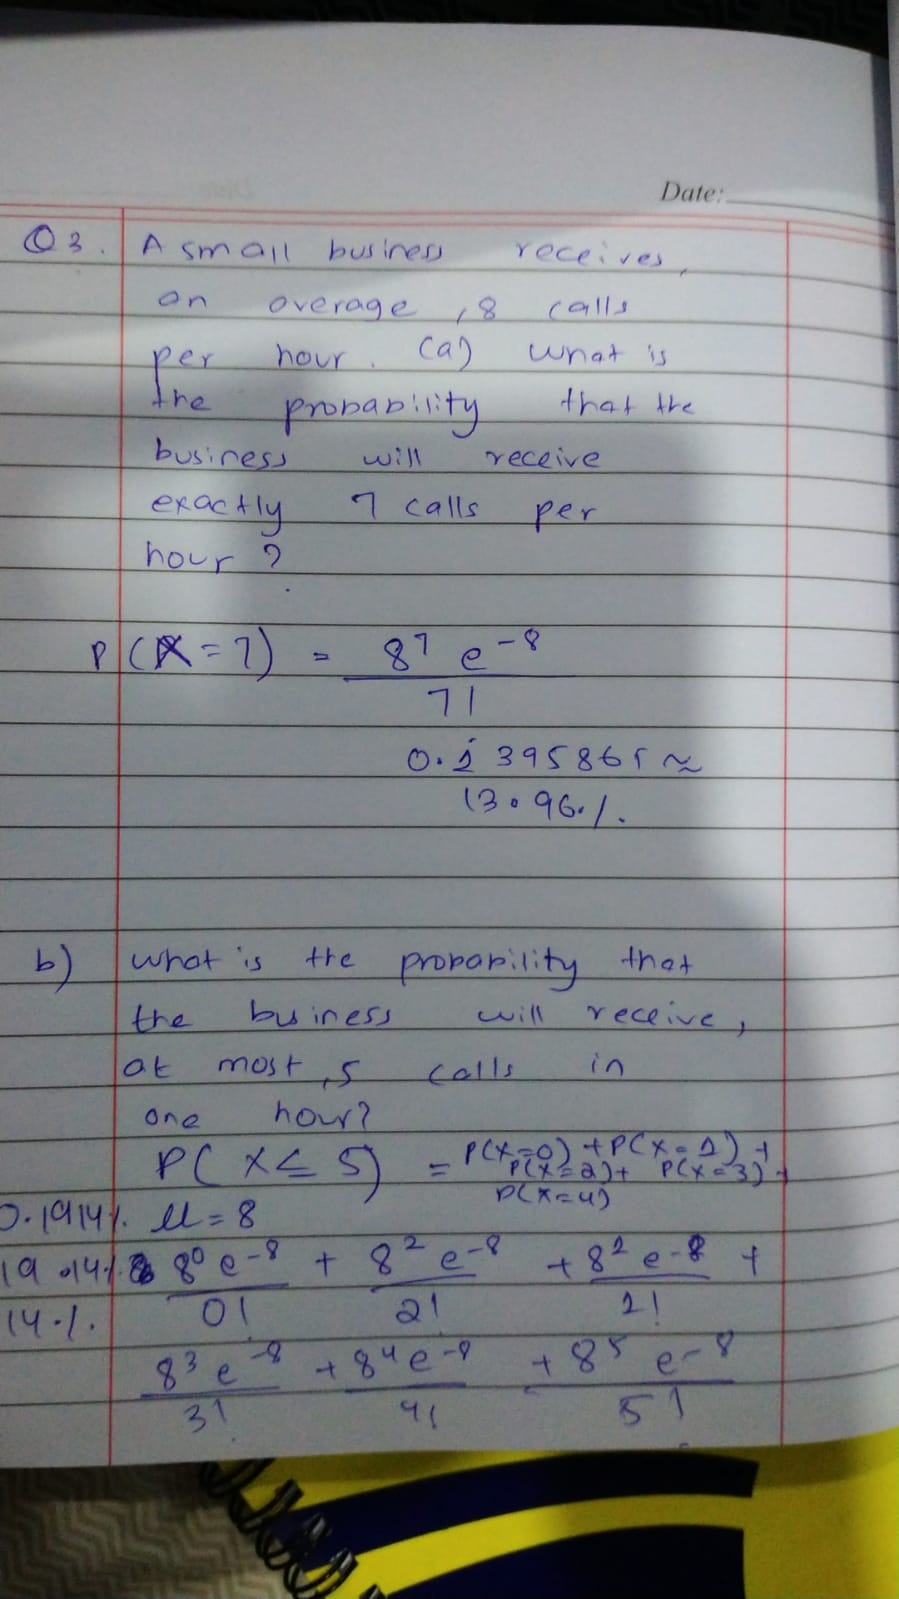 Date:
Q3. A small business receives,
on overage, 8 calls
per hour. (a) what is
the probability that the
business will receive
exactly 7 calls per
hour?
P(X=7) = 8^7 e^-8
7!
0.1395865 ≈
13.96%.
b) what is the probability that
the business will receive,
at most, 5 calls in
one hour?
P(X≤5) = P(X=0)+P(X=1)+
P(X=2)+ P(X=3)+
P(X=4)
0.1914%. μ=8
19.14%. 8^0 e^-8 + 8^2 e^-8 + 8^1 e^-8 +
14%. 0! 2! 1!
8^3 e^-8 + 8^4 e^-8 + 8^5 e^-8
3! 4! 5!